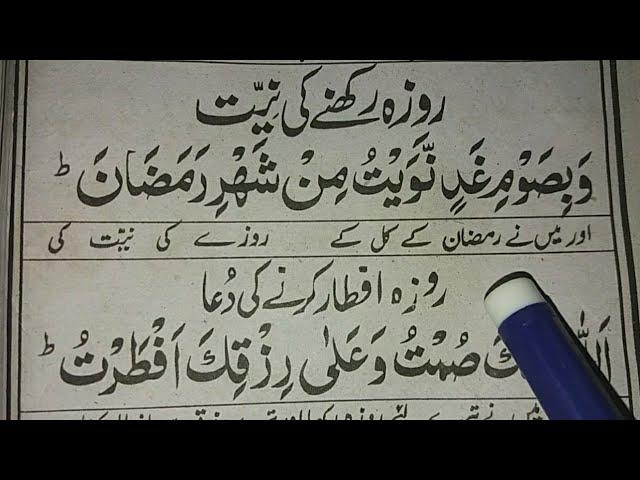 روزہ رکھنے کی نیّت
وَبِصَوْمِ غَدٍ نَّوَيْتُ مِنْ شَهْرِ رَمَضَانَ ط
اور میں نے رمضان کے کل کے روزے کی نیّت کی
روزہ افطار کرنے کی دُعا
صُمْتُ وَعَلٰى رِزْقِكَ اَفْطَرْتُ ط